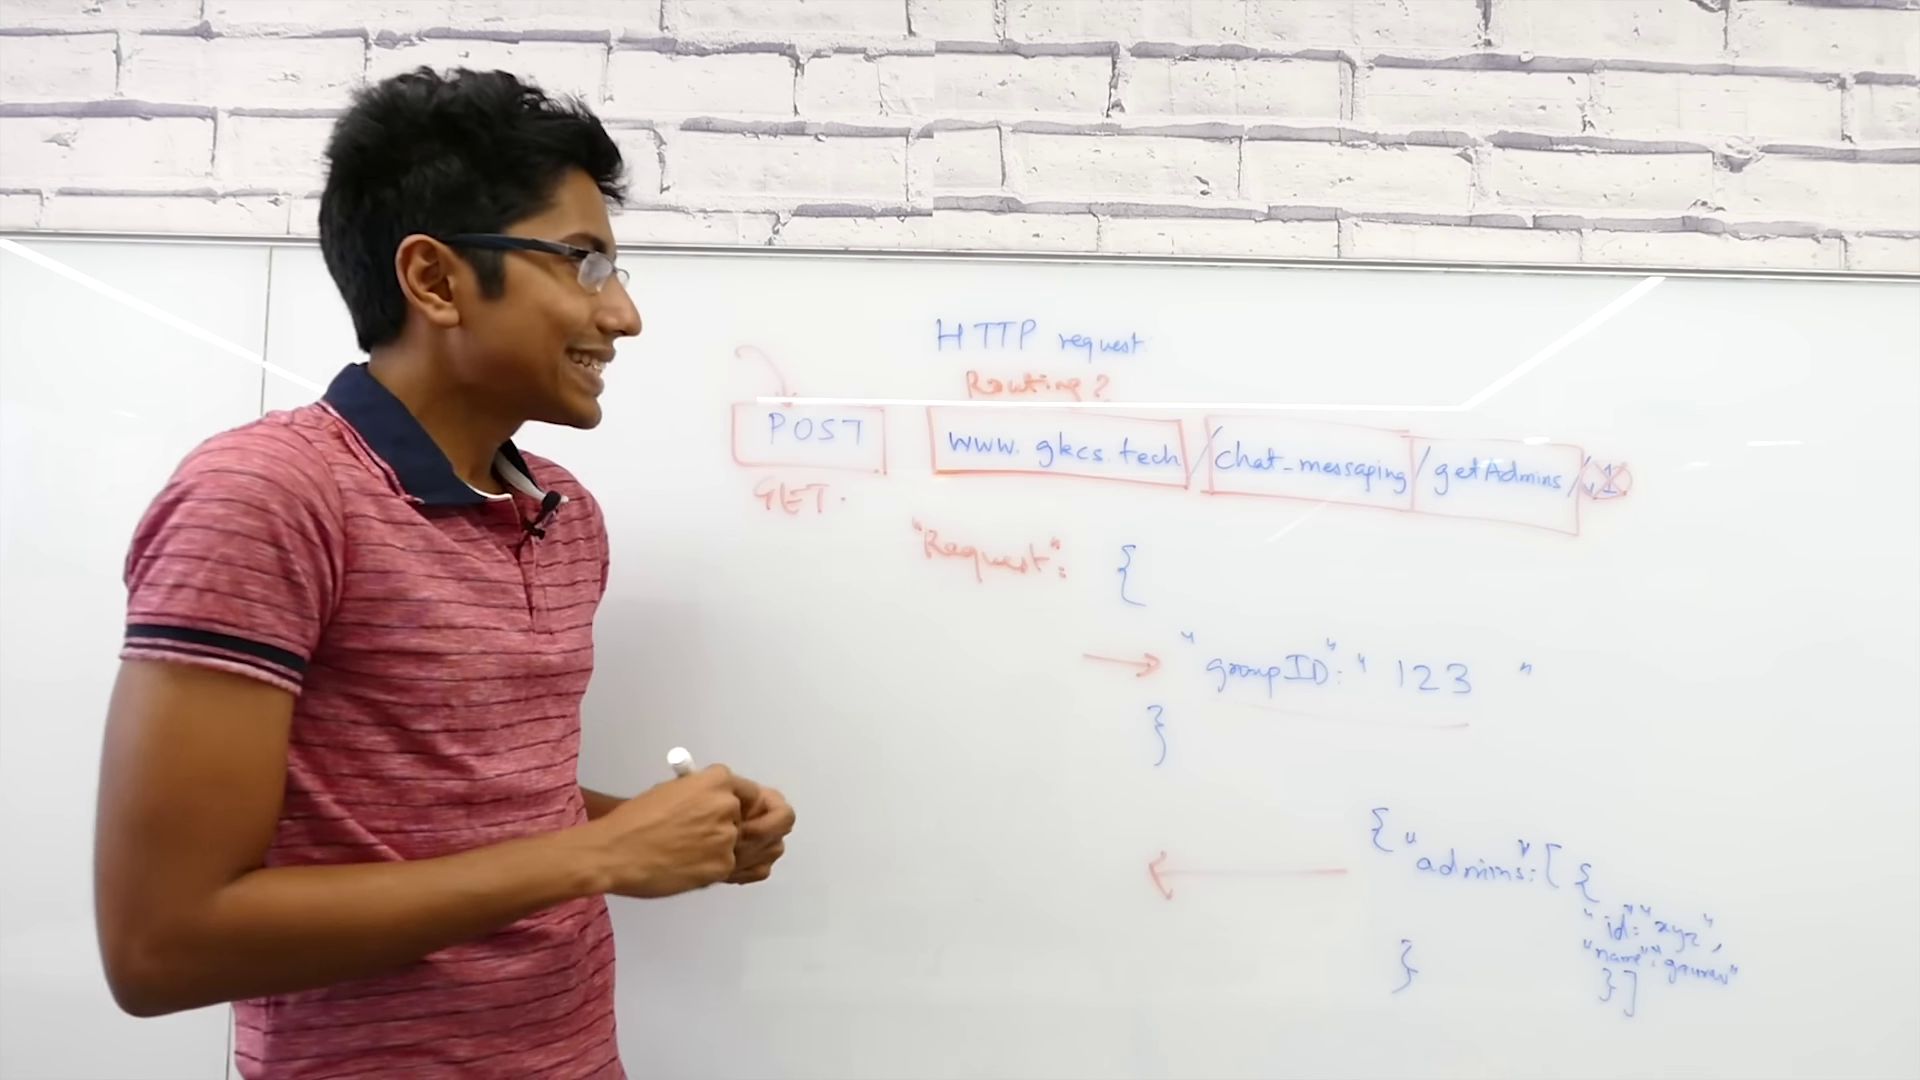 HTTP request
Routing?
POST www.gkcs.tech/chat_messaging/getAdmins/
GET.
"Request": {
"groupID": "123"
}
{ "admins": [ {
"id": "xyz",
"name": "gaurav"
} ]
}